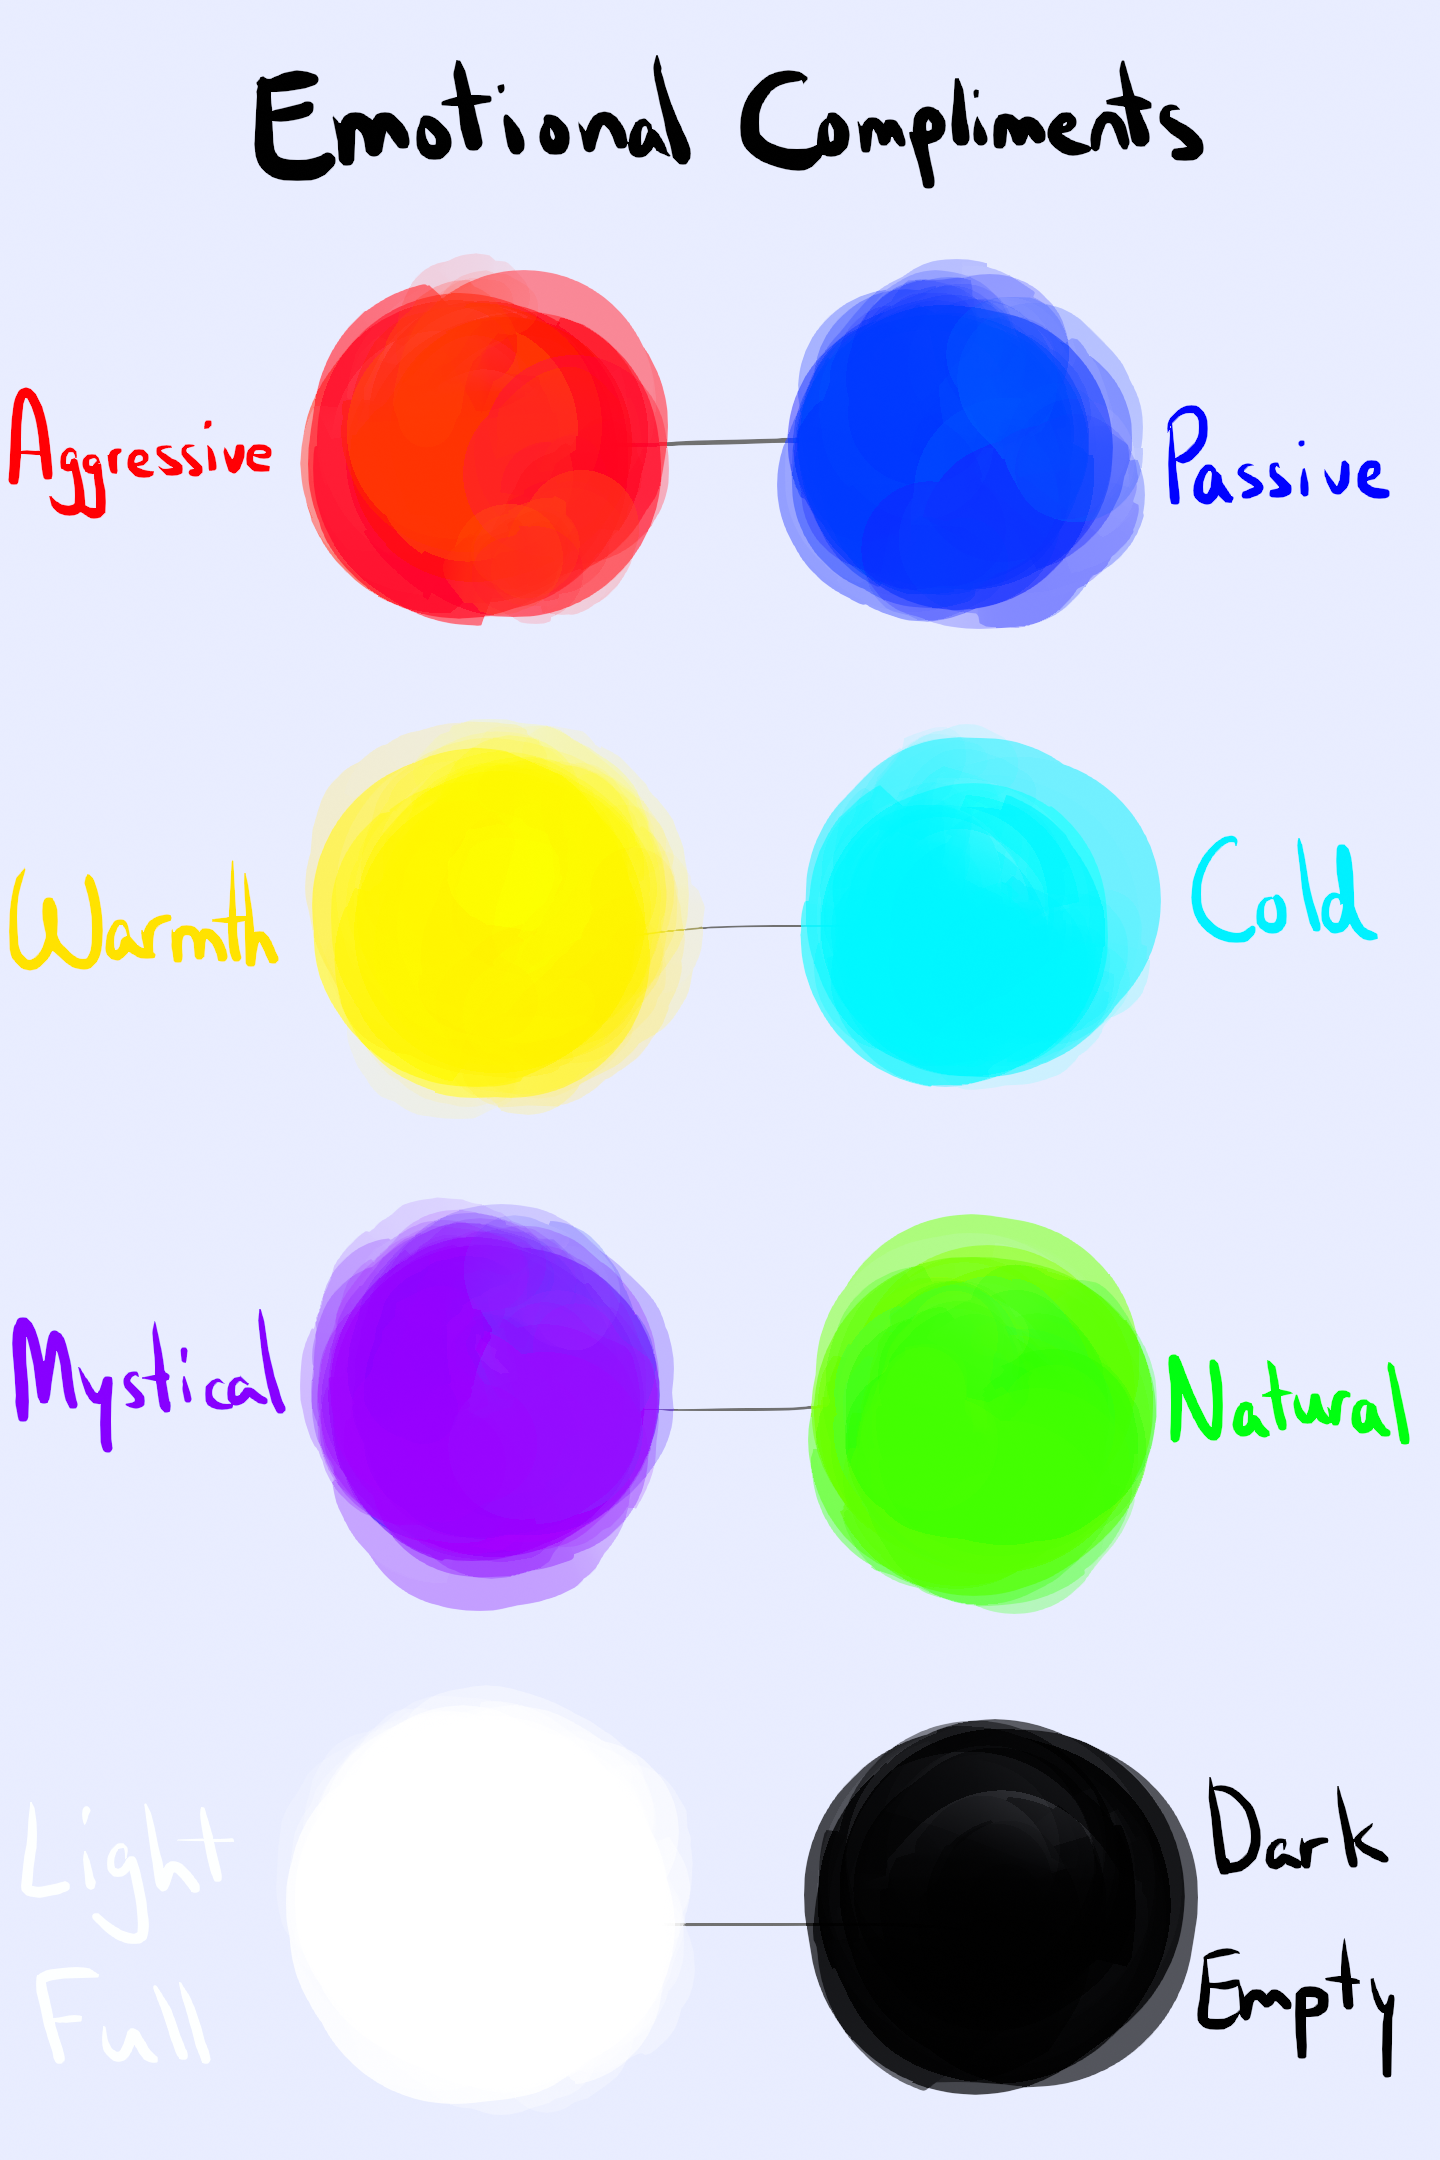 Emotional Compliments
Aggressive
Passive
Warmth
Cold
Mystical
Natural
Light
Full
Dark
Empty